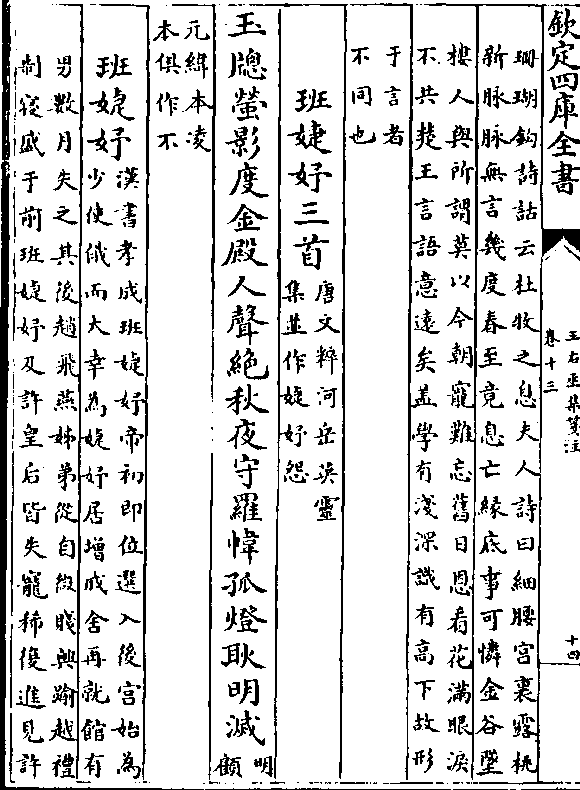 欽定四庫全書
王右丞集箋注
卷十三
十四
珊瑚鈎詩話云杜牧之息夫人詩曰細腰宫裏露桃
新脉脉無言幾度春至竟息亡緣底事可憐金谷墜
樓人與所謂莫以今朝寵難忘舊日恩看花滿眼淚
不共楚王言語意遠矣盖學有淺深識有高下故形
于言者
不同也
班婕妤三首
唐文粹河岳英靈
集並作婕妤怨
玉牕螢影度金殿人聲絶秋夜守羅幃孤燈耿明滅
明
顧
元緯本凌
本俱作不
班婕妤
漢書孝成班婕妤帝初即位選入後宫始為
少使俄而大幸為婕妤居增成舍再就館有
男數月失之其後趙飛燕姊弟從自微賤興踰越禮
制寖盛于前班婕妤及許皇后皆失寵稀復進見許